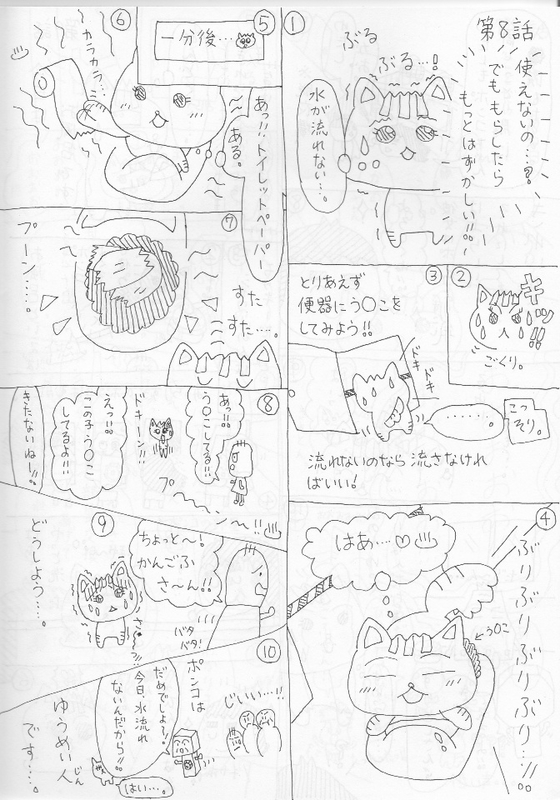 第8話
①
使えないの…?
でも もらしたら
もっとはずかしい!!。
ぶる
ぶる…!
水が流れない…。
②
ギクッ!!
ごくり。
③
とりあえず
便器にう〇こを
してみよう!!
ドキ
ドキ
……。
こっ
そり。
流れないのなら 流さなけれ
ばいい!
④
ぶりぶりぶりぶりぶり…!!。
はあ…♡♨
う〇こ
⑤
一分後…
⑥
カラカラ…
♨
あっ!!トイレットペーパー
ある。
⑦
プーン……。
すた
すた…。
⑧
あっ!!
う〇こしてる!!
ドキーン!!
えっ!!
この子う〇こ
してるよ!!
きたないね!!。
プ~ン~!!♨
⑨
ちょっと~!
かんごふ
さ~ん!!
バタ
バタ!
どうしよう…。
⑩
じいい…!!
ポンコは
だめでしょ~!
今日、水流れ
ないんだから!!
はい…。
ゆうめい人
じん
です…。